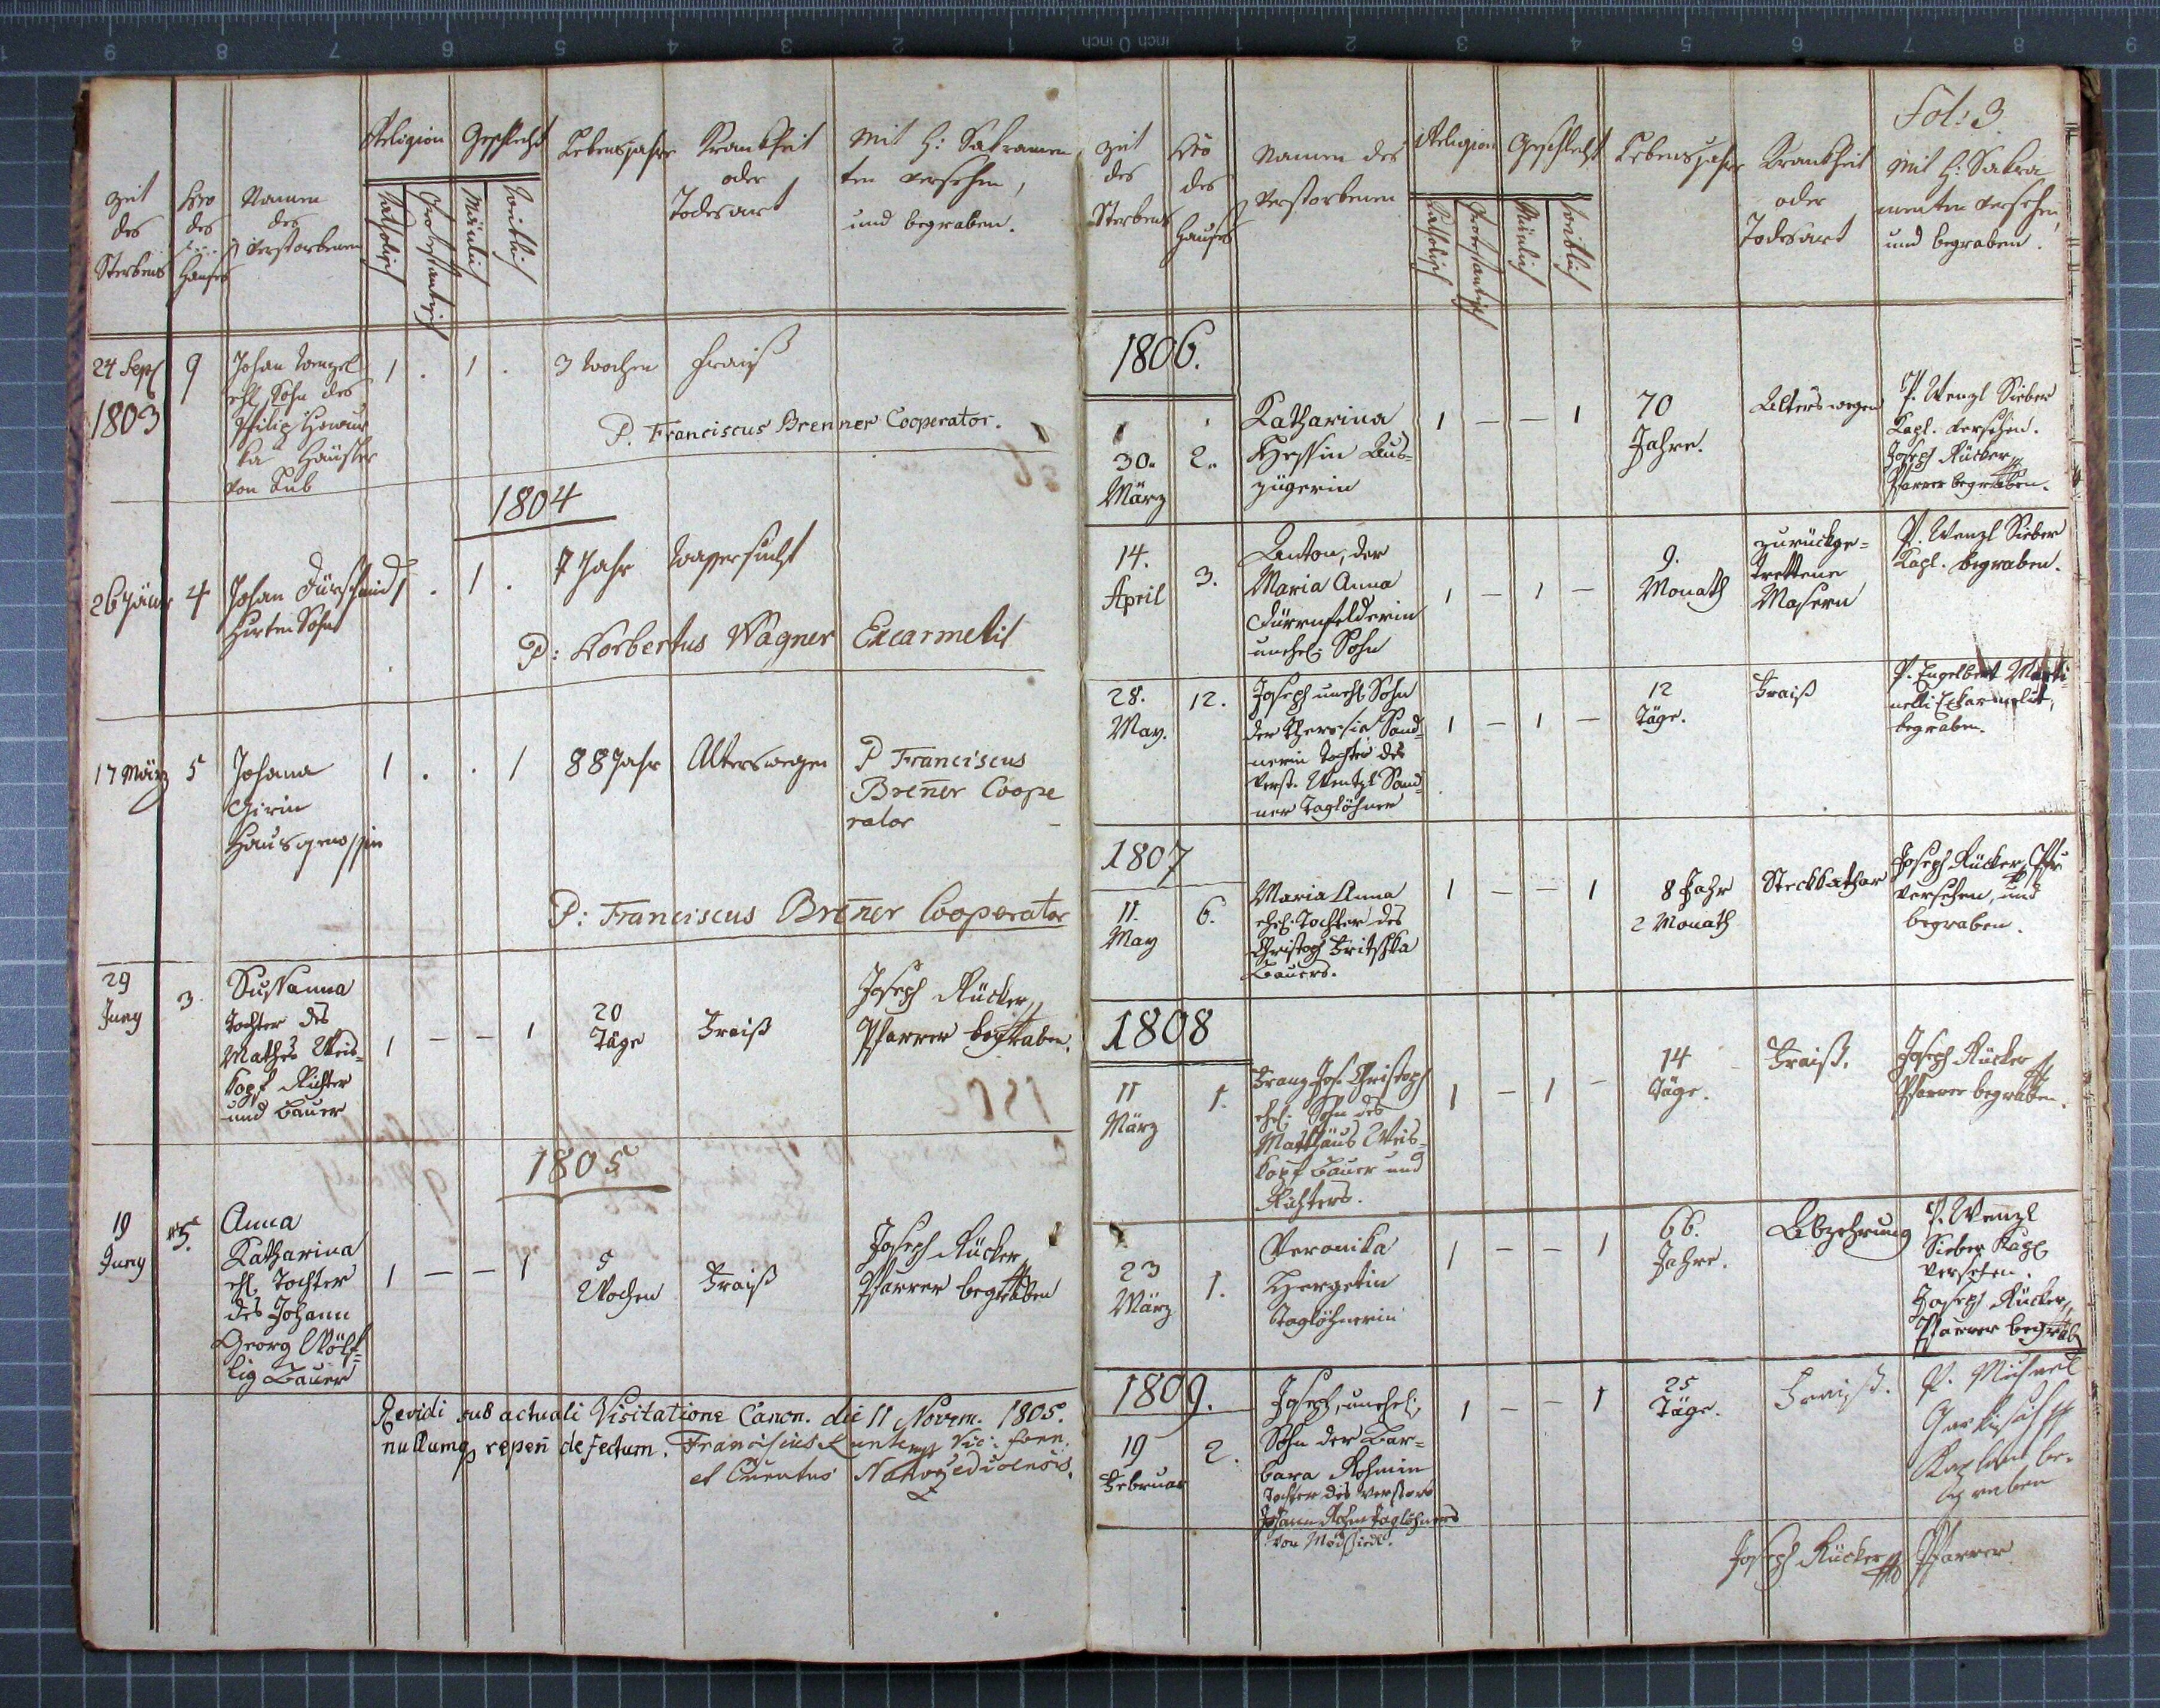 Zeit des Sterbens
Nro des Hauses
Namen des Verstorbenen
Religion
Katholisch
Protestantisch
Geschlecht
Mänlich
Weiblich
Lebensjahre
Krankheit oder Todesart
Mit H: Sakramen
ten versehen,
und begraben.
24 Sept
1803
9
Johan Wenzel
ehl. Sohn des
Philip
Häusler
von
1 . 1 .
3 Wochen
Frais
P. Franciscus Brenner Cooperator.
1804
26 Jäner
4
Johan Dürschmid
Hirten Sohn
1 . 1 .
7 Jahr
Wassersucht
P: Norbertus Wagner Excarmelit
17 März
5
Johana
Girin
Hausgenossin
1 . . 1
88 Jahr
Alterswegen
P Franciscus
Breñer Coope
rator
P: Franciscus Breñer Cooperator
29
Juny
3.
Susanna
Tochter des
Mathes Weis=
kopf Richter
und Bauer
1 — — 1
20
Täge
Fraiß
Joseph Rücker
Pfarrer begraben.
1805
19
Juny
5.
Anna
Katharina
ehl. Tochter
des Johann
Georg Wölf=
lig Bauer
1 — — 1
9
Wochen
Fraiß
Joseph Rücker
Pfarrer begraben
Revidi sub actuali Visitatione Canon. die 11 Novem. 1805.
nullumq reperi defectum. Franciscus Vic: foran.
et Curatus
Fol: 3
Zeit des Sterbens
Nro des Hauses
Namen des
Verstorbenen
Religion
Katholisch
Protestantisch
Geschlecht
Mänlich
Weiblich
Lebensjahre
Krankheit
oder
Todesart
Mit H: Sakra
menten versehen,
und begraben.
1806.
30.
März
2.
Katharina
Hessin Aus=
zügerin
1 — — 1
70
Jahre.
Alterswegen
P. Wenzl Sieber
Kapl. versehen.
Joseph Rücker
Pfarrer begraben.
14.
April
3.
Anton, der
Maria Anna
Dürrnfelderin
unehel. Sohn
1 — 1 —
9.
Monath
zurückge=
trettene
Masern
P. Wenzl Sieber
Kapl. begraben.
28.
May.
12.
Joseph unehl. Sohn
der Theresia Sand=
nerin Tochter des
Verst. Wentzl Sand=
ner Taglöhner
1 — 1 —
12
Täge.
Fraiß
P. Engelbert Marti=
nelli Exkarmelit,
begraben.
1807
11.
May
6.
Maria Anna
ehel. Tochter des
Christoph Fritschka
Bauers.
1 — — 1
8 Jahr
2 Monath
Steckkathar
Joseph Rücker Pfr
versehen, und
begraben.
1808
11
März
1.
Franz Jos. Christoph
ehel. Sohn des
Matthäus Weis=
kopf Bauer und
Richters.
1 — 1 —
14
Täge.
Fraiß.
Joseph Rücker
Pfarrer begraben.
23
März
1.
Veronika
Hergetin
Taglöhnerin
1 — — 1
66.
Jahre.
Abzehrung
P. Wenzl
Sieber Kapl
versehen.
Joseph Rücker,
Pfarrer begrab
1809.
19
Februar
2.
Joseph, unehel.
Sohn der Bar=
bara Rohmin
Tochter des verstorb
Johann Rohm Taglöhners
von
1 — — 1
25
Täge.
Fraiß.
P. Michael
Kaplan be=
graben
Joseph Rücker Pfarrer